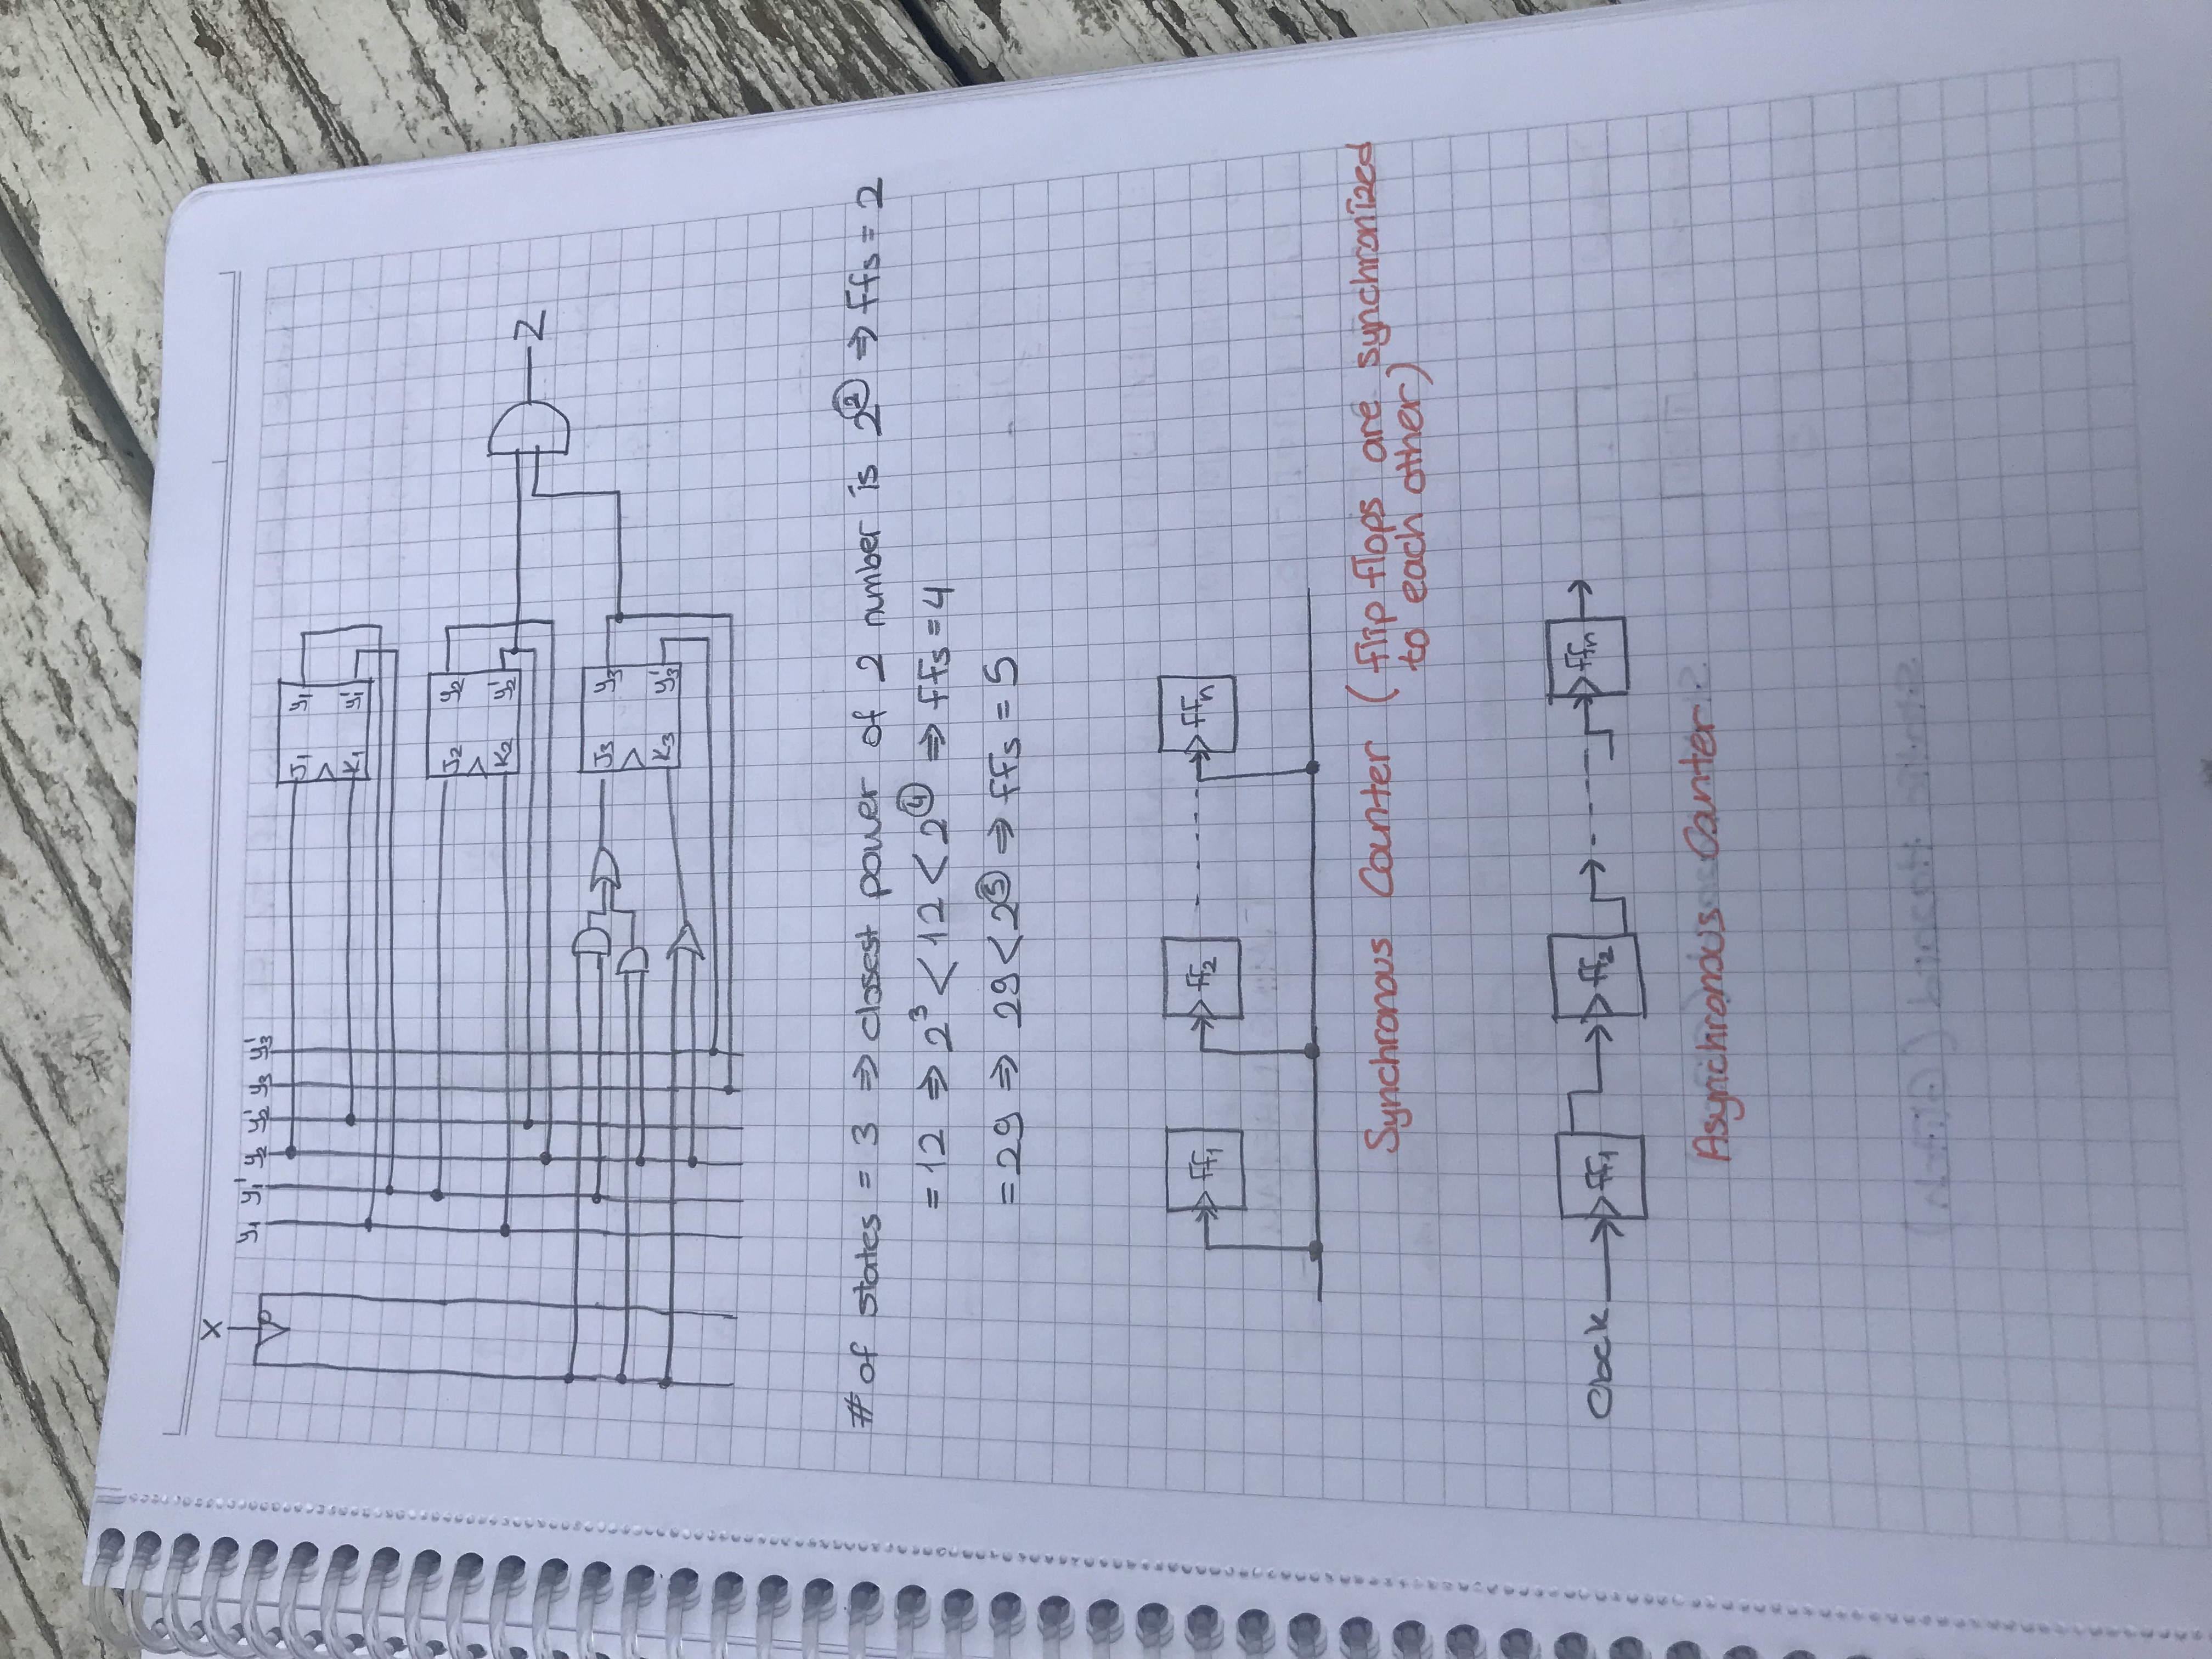 x
y₁ y₁' y₂ y₂' y₃ y₃'
J₁ y₁
K₁ y₁'
J₂ y₂
K₂ y₂'
Z
J₃ y₃
K₃ y₃'
# of states = 3 ⇒ closest power of 2 number is 2② ⇒ ffs = 2
= 12 ⇒ 2³ < 12 < 2④ ⇒ ffs = 4
= 29 ⇒ 29 < 2⑤ ⇒ ffs = 5
ff₁ ff₂ ffₙ
Synchronous Counter (flip flops are synchronized
to each other)
Clock ff₁ ff₂ ffₙ
Asynchronous Counter
Static Hazard (Glitch)